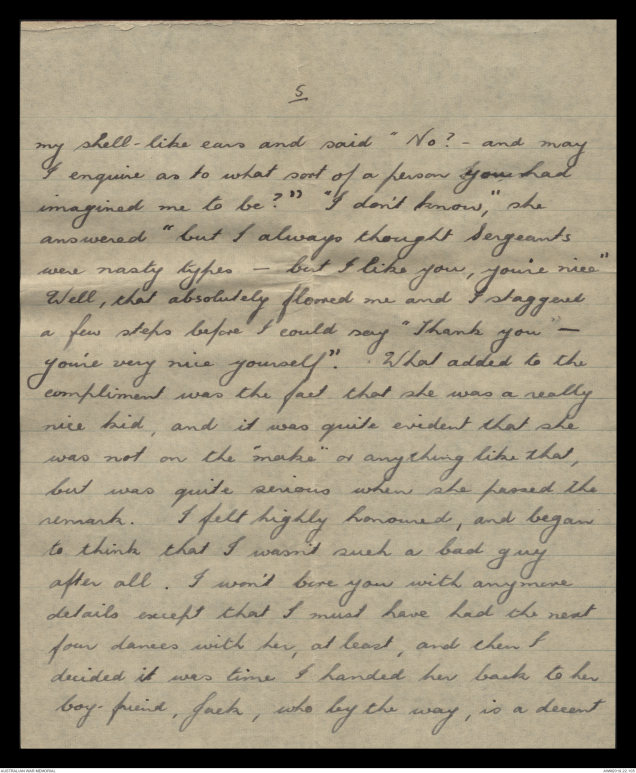 5
my shell-like ears and said "No? - and may
I enquire as to what sort of a person you had
imagined me to be?" "I don't know," she
answered "but I always thought Sergeants
were nasty types — but I like you, you're nice"
Well, that absolutely floored me and I staggered
a few steps before I could say "Thank you" —
you're very nice yourself". What added to the
compliment was the fact that she was a really
nice kid, and it was quite evident that she
was not on the "make" or anything like that,
but was quite serious when she passed the
remark. I felt highly honoured, and began
to think that I wasn't such a bad guy
after all. I won't bore you with anymore
details except that I must have had the next
four dances with her, at least, and then I
decided it was time I handed her back to her
boy-friend, Jack, who by the way, is a decent
AUSTRALIAN WAR MEMORIAL